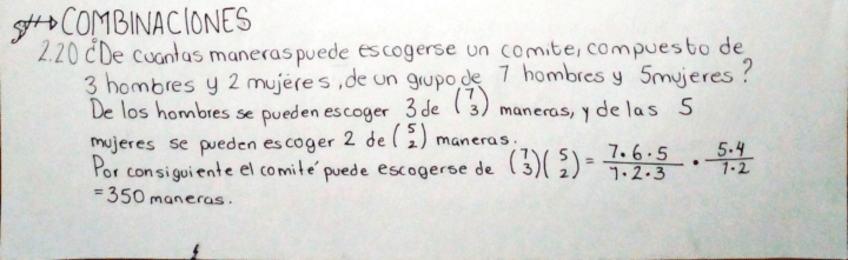 COMBINACIONES
2.20 ¿De cuantas maneras puede escogerse un comite, compuesto de
3 hombres y 2 mujeres, de un grupo de 7 hombres y 5 mujeres?
De los hombres se pueden escoger 3 de (7 3) maneras, y de las 5
mujeres se pueden escoger 2 de (5 2) maneras.
Por consiguiente el comité puede escogerse de (7 3)(5 2) = 7·6·5/1·2·3 · 5·4/1·2
= 350 maneras.